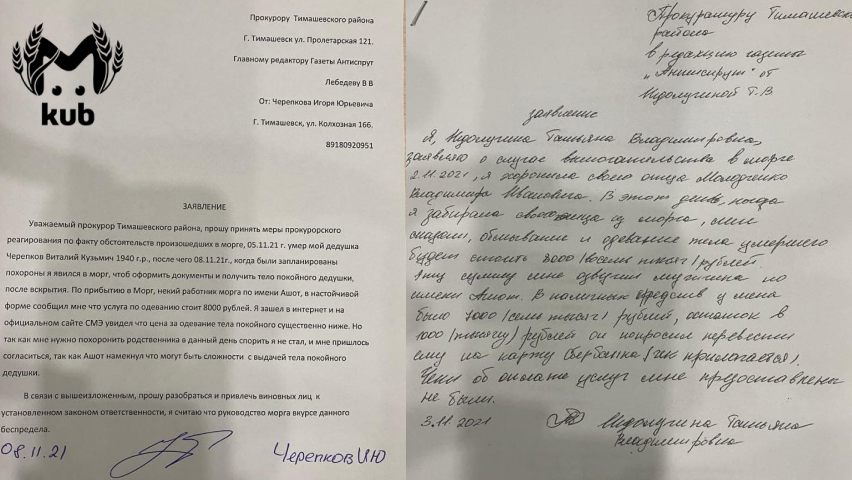 kub
Прокурору Тимашевского района
Г. Тимашевск ул. Пролетарская 121.
Главному редактору Газеты Антиспрут
Лебедеву В В
От: Черепкова Игоря Юрьевича
Г. Тимашевск, ул. Колхозная 166.
89180920951
ЗАЯВЛЕНИЕ
Уважаемый прокурор Тимашевского района, прошу принять меры прокурорского
реагирования по факту обстоятельств произошедших в морге, 05.11.21 умер мой дедушка
Черепков Виталий Кузьмич 1940 г.р., после чего 08.11.21г., когда были запланированы
похороны я явился в морг, чтоб оформить документы и получить тело покойного дедушки,
после вскрытия. По прибытию в Морг, некий работник морга по имени Ашот, в настойчивой
форме сообщил мне что услуга по одеванию стоит 8000 рублей. Я зашел в интернет и на
официальном сайте СМЭ увидел что цена за одевание тела покойного существенно ниже. Но
так как мне нужно похоронить родственника в данный день спорить я не стал, и мне пришлось
согласиться, так как Ашот намекнул что могут быть сложности с выдачей тела покойного
дедушки.
В связи с вышеизложенным, прошу разобраться и привлечь виновных лиц к
установленном законом ответственности, я считаю что руководство морга вкурсе данного
беспредела.
08.11.21 Черепков ИЮ
Прокуратуру Тимашевско
района
в редакцию газеты
„Антиспрут" от
Т.В
заявление
Я, Татьяна Владимировна,
заявляю о случае вымогательства в морге
2.11.2021, я хоронила своего отца Молодченко
Владимира Ивановича. В этот день, когда
я забирала своего отца из морга, мне
сказали, обмывание и одевание тела умершего
будет стоить 8000 (восемь тысяч) рублей.
Эту сумму мне озвучил мужчина по
имени Ашот. В наличных средств у меня
было 7000 (семь тысяч) рублей, остаток в
1000 (тысячу) рублей он попросил перевести
ему на карту Сбербанка (чек прилагается).
Чеки об оплате услуг мне предоставлены
не были.
3.11.2021 Татьяна
Владимировна